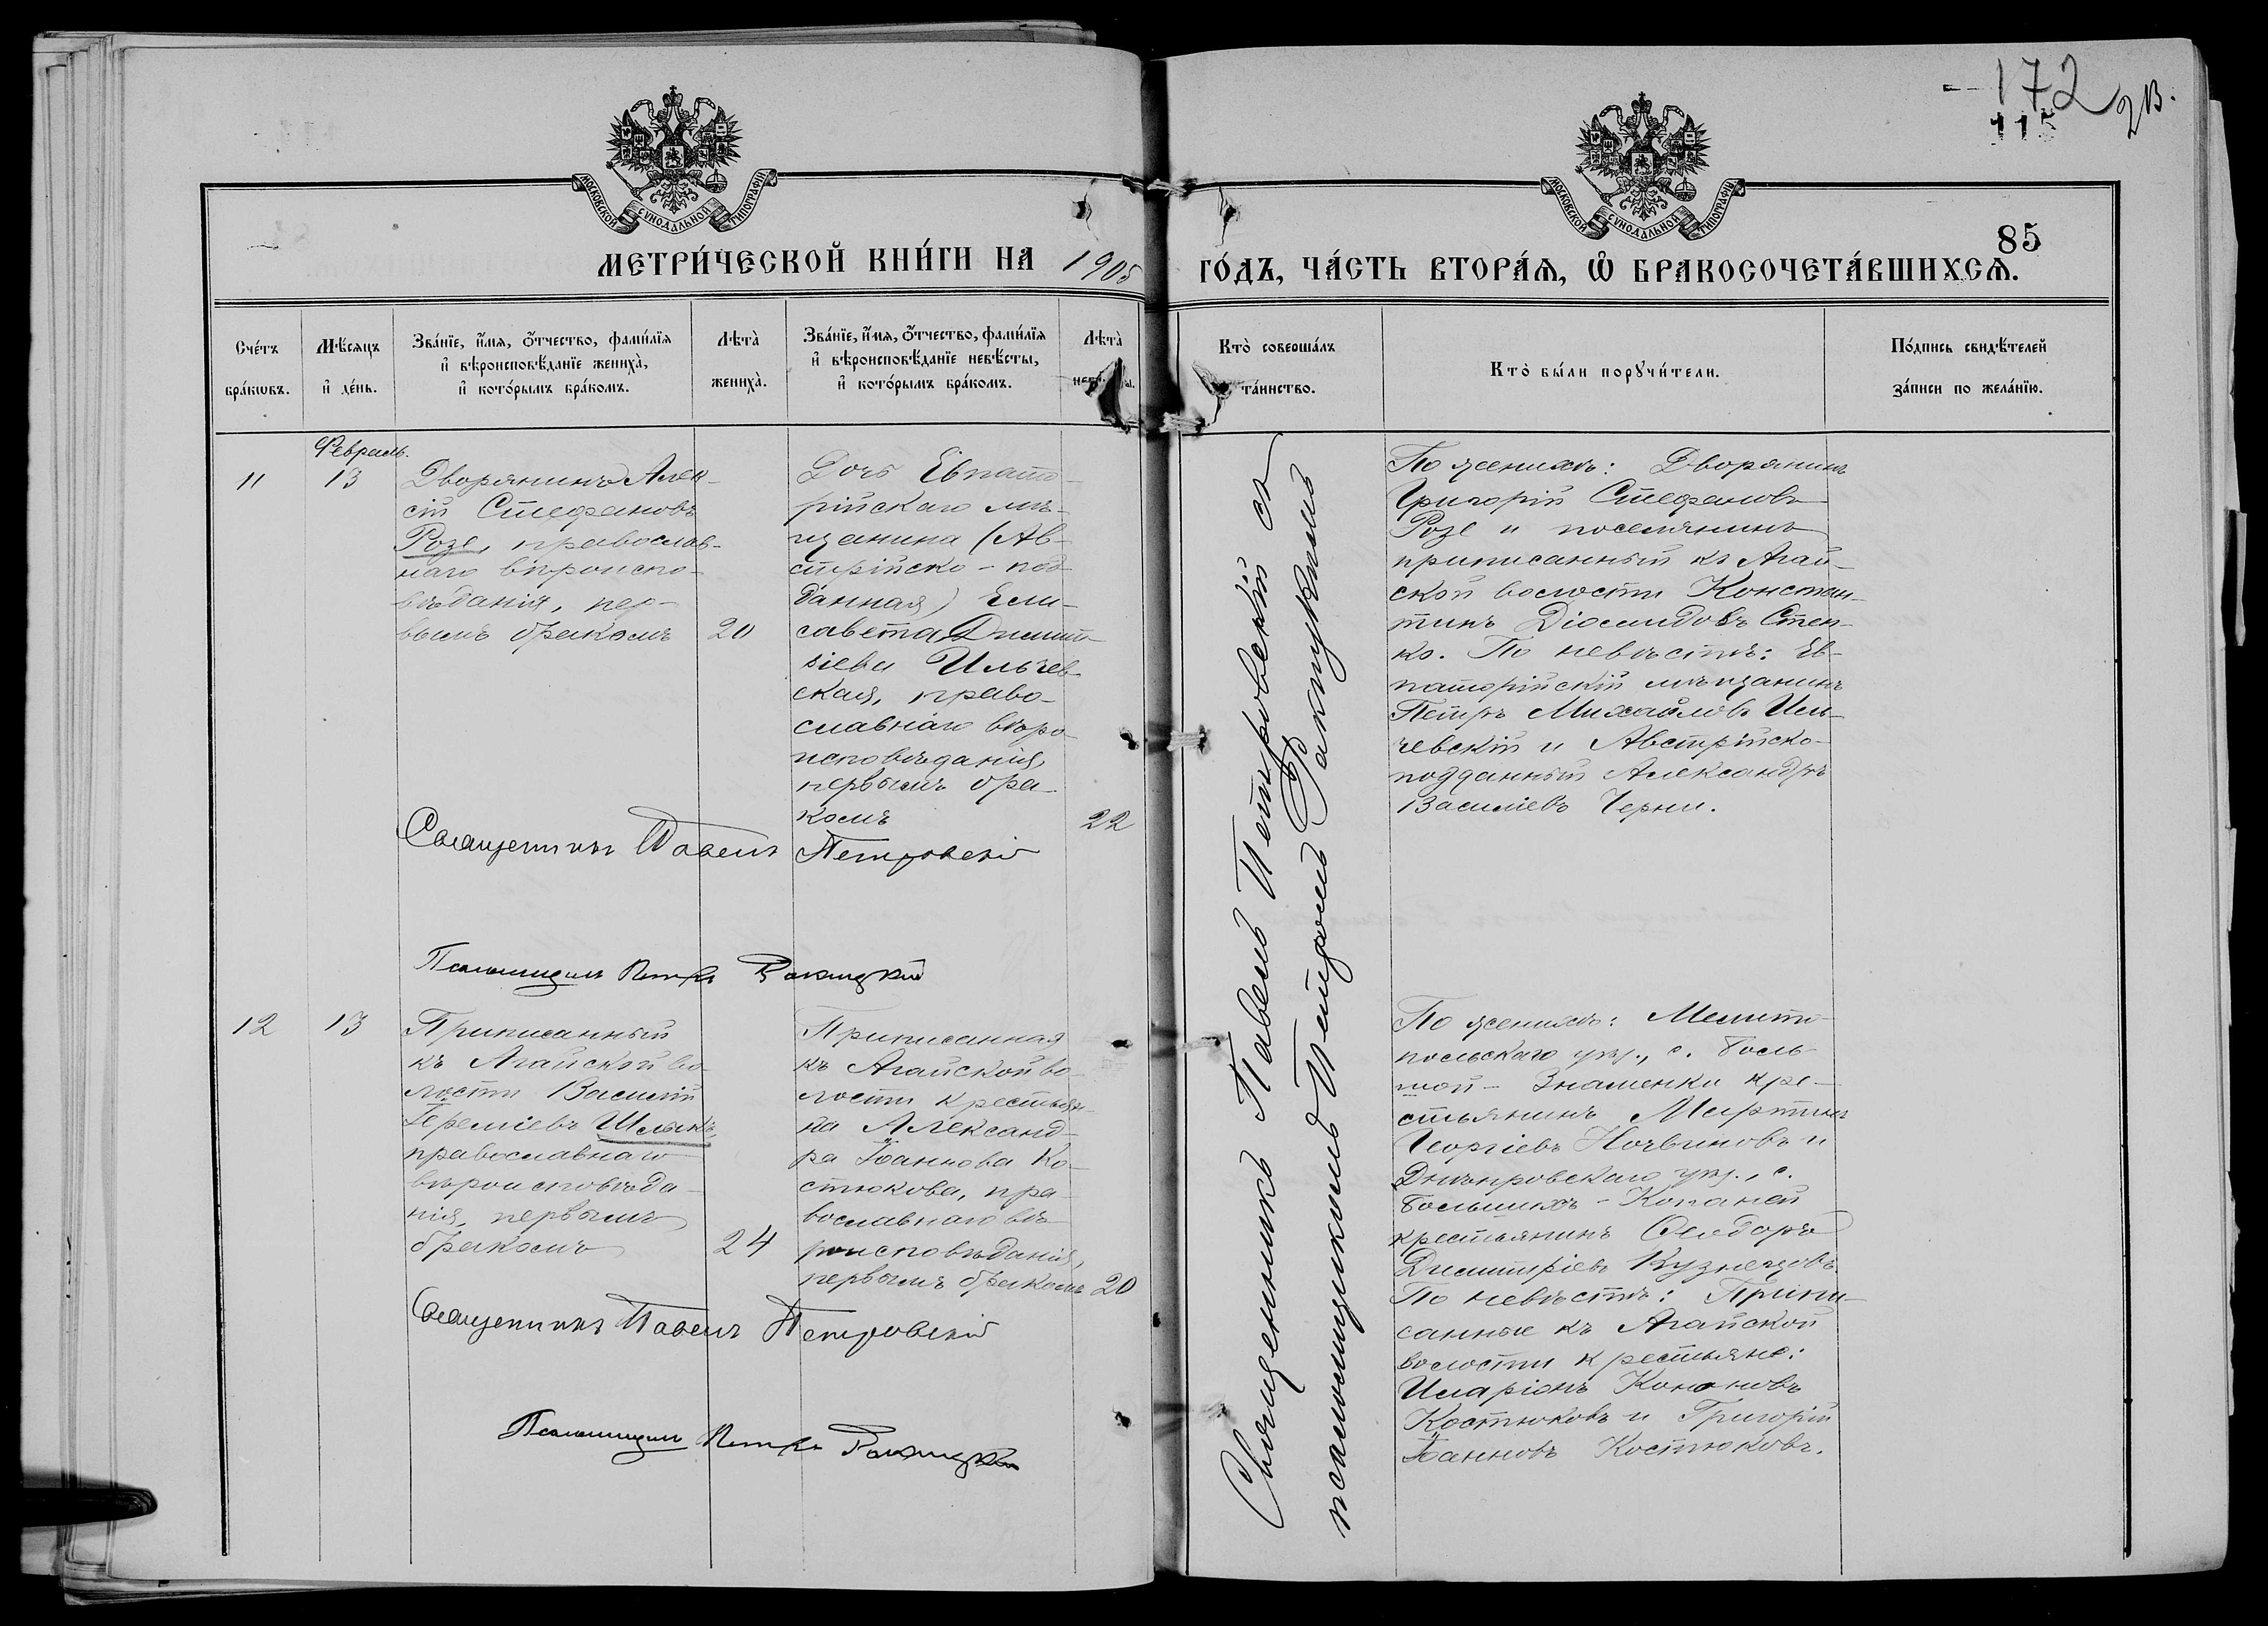 172
2В.
115
МОСКОВСКОЙ СѴНОДАЛЬНОЙ ТИПОГРАФІИ
МОСКОВСКОЙ СѴНОДАЛЬНОЙ ТИПОГРАФІИ
85
МЕТРИ́ЧЕСКОЙ КНИ́ГИ НА 1905 ГО́ДЪ, ЧА́СТЬ ВТОРА́Я, Ѿ БРАКОСОЧЕТА́ВШИХСЯ.
Сче́тъ
бра́кѡвъ.
Мѣ́сяцъ
и҆ де́нь.
Зва́нїе, и҆́мя, ѻ҆́тчество, фами́лїя
и҆ вѣроисповѣ́данїе жениха̀,
и҆ кото́рымъ бра́комъ.
Лѣ́та̀
жениха̀.
Зва́нїе, и҆́мя, ѻ҆́тчество, фами́лїя
и҆ вѣроисповѣ́данїе невѣ́сты,
и҆ кото́рымъ бра́комъ.
Лѣ́та̀
Кто̀ соверша́лъ
та́инство.
Кто̀ бы́ли порꙋчи́тели.
По́дпись свидѣ́телей
за́писи по жела́нїю.
Февраль.
11
13
Дворянинъ Алек-
сій Стефановъ
Розе, православ-
наго вѣроиспо-
вѣданія, пер-
вымъ бракомъ
20
Дочь Евпато-
рійскаго мѣ-
щанина (Ав-
стрійско-под-
данная) Ели-
савета Димит-
ріева Ильчев-
ская, право-
славнаго вѣро-
исповѣданія,
первымъ бра-
комъ
22
Священникъ Павелъ Петровскій
Псаломщикъ Петръ
Священникъ Павелъ Петровскій съ
псаломщикомъ Петромъ
По женихѣ: Дворянинъ
Григорій Стефановъ
Розе и поселянинъ
приписанный къ Агай-
ской волости Констан-
тинъ Діомидовъ Стен-
ко. По невѣстѣ: Ев-
паторійскій мѣщанинъ
Петръ Михайловъ Иль-
чевскій и Австрійско-
подданный Александръ
Василіевъ Черни.
12
13
Приписанный
къ Агайской во-
лости Василій
Іереміевъ Шлякъ,
православнаго
вѣроисповѣда-
нія, первымъ
бракомъ
24
Приписанная
къ Агайской во-
лости крестьян-
ка Александ-
ра Іоаннова Ко-
стюкова, пра-
вославнаго вѣ-
роисповѣданія,
первымъ бракомъ
20
Священникъ Павелъ Петровскій
Псаломщикъ Петръ
По женихѣ: Мелито-
польскаго уѣз., с. Боль-
шой-Знаменки кре-
стьянинъ Мартинъ
Георгіевъ и
Днѣпровскаго уѣз., с.
Большихъ-Копаней
крестьянинъ Ѳеодоръ
Димитріевъ Кузнецовъ.
По невѣстѣ: Припи-
санные къ Агайской
волости крестьяне:
Иларіонъ Кононовъ
Костюковъ и Григорій
Іоанновъ Костюковъ.